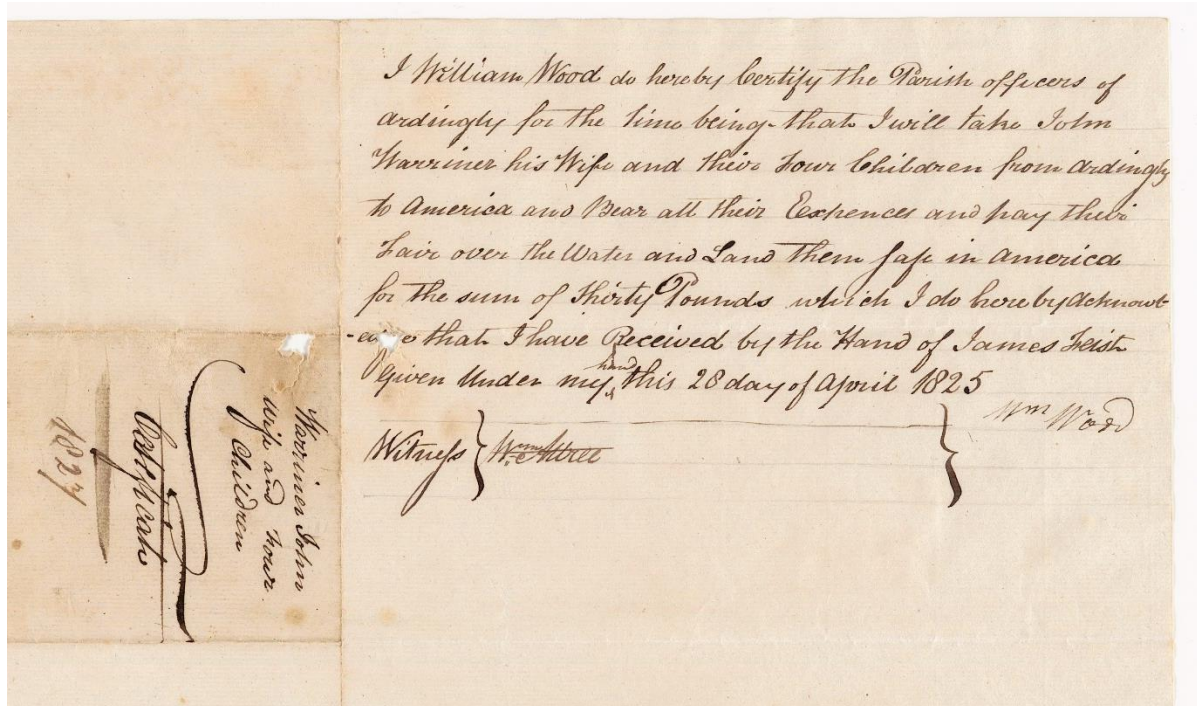 I William Wood do hereby Certify the Parish officers of
ardingly for the time being that I will take John
Warriner his Wife and their Four Children from Ardingly
to America and Bear all their Eexpences and pay their
Fair over the Water and Land them safe in America
for the sum of thirty Pounds which I do hereby acknowl-
that I have Received by the Hand of James Feist
Given Under my hand this 28 day of April 1825
Wm Wood
Witness
Warriner John
Wife and Four
Children
Certificate
1827